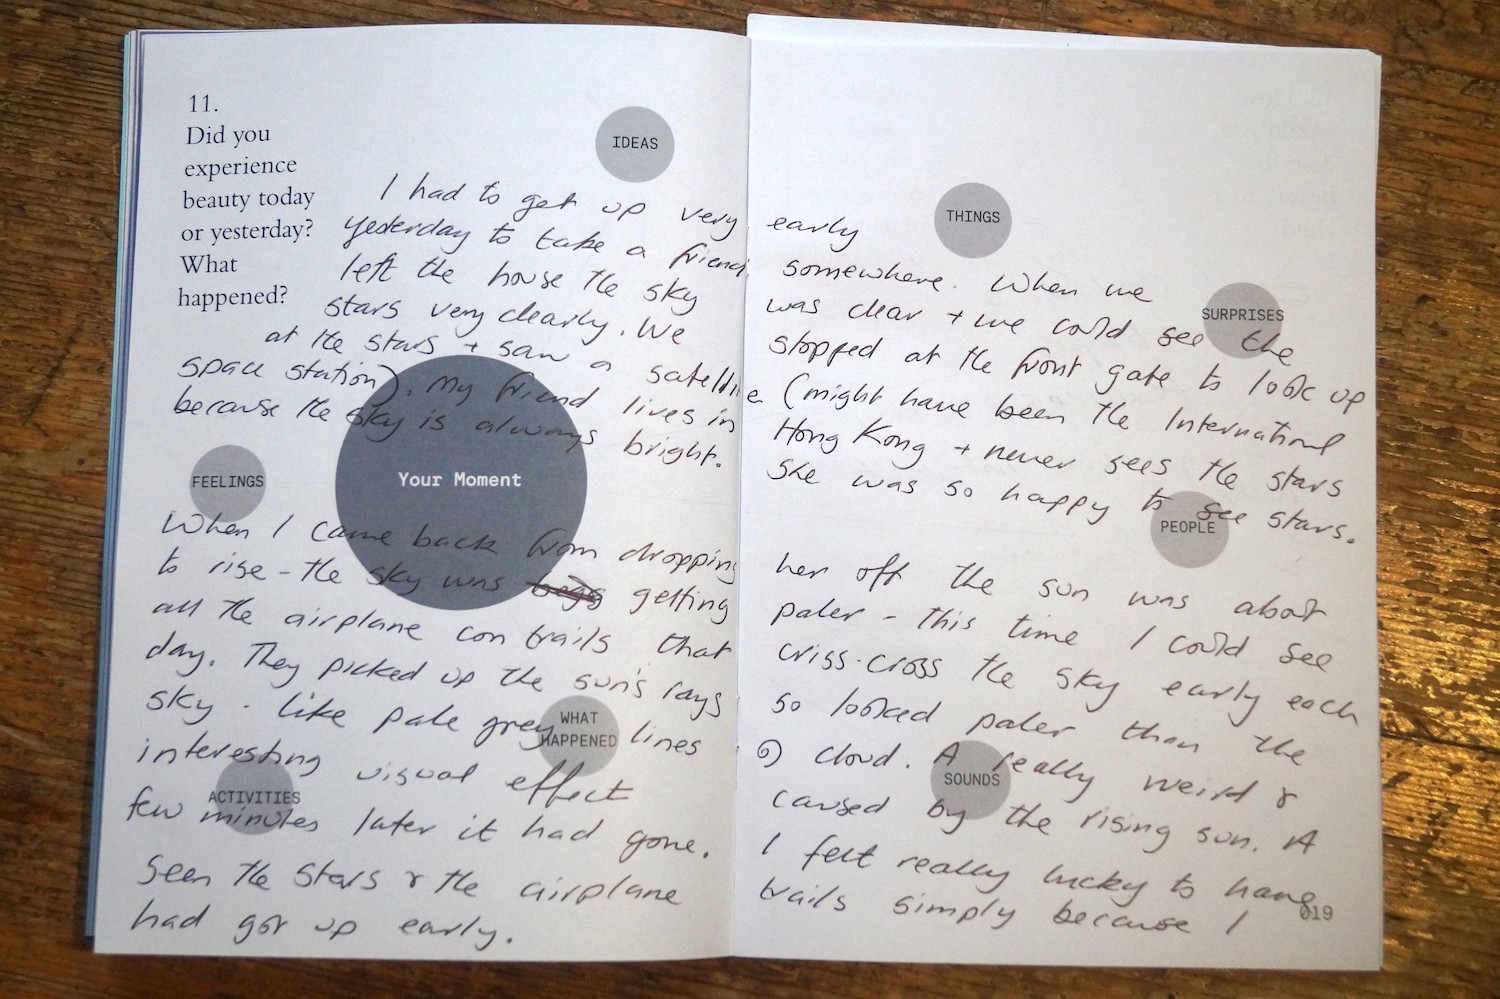 11.
Did you
experience
beauty today
or yesterday?
What
happened?
IDEAS
THINGS
SURPRISES
FEELINGS
Your Moment
PEOPLE
WHAT
HAPPENED
ACTIVITIES
SOUNDS
I had to get up very early
yesterday to take a friend somewhere. When we
left the house the sky was clear + we could see the
stars very clearly. We stopped at the front gate to look up
at the stars + saw a satellite (might have been the International
space station). My friend lives in Hong Kong + never sees the stars
because the sky is always bright. She was so happy to see stars.
When I came back from dropping her off the sun was about
to rise - the sky was getting paler - this time I could see
all the airplane con trails that criss-cross the sky early each
day. They picked up the sun's rays so looked paler than the
sky. Like pale grey lines of cloud. A really weird &
interesting visual effect caused by the rising sun. A
few minutes later it had gone. I felt really lucky to have
seen the stars & the airplane trails simply because I
had got up early.
019